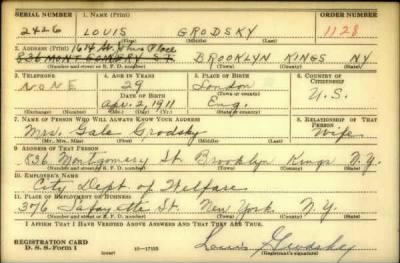 SERIAL NUMBER 1. NAME (Print) ORDER NUMBER
2426 LOUIS GRODSKY 1128
(First) (Middle) (Last)
2. ADDRESS (Print) 1614 St. Johns Place
836 MONTGOMERY ST. BROOKLYN KINGS NY
(Number and street or R. F. D. number) (Town) (County) (State)
3. TELEPHONE 4. AGE IN YEARS 5. PLACE OF BIRTH 6. COUNTRY OF CITIZENSHIP
NONE 29 London U.S.
DATE OF BIRTH (Town or county)
Apr. 2, 1911 Eng.
(Exchange) (Number) (Mo.) (Day) (Yr.) (State or country)
7. NAME OF PERSON WHO WILL ALWAYS KNOW YOUR ADDRESS 8. RELATIONSHIP OF THAT PERSON
Mrs. Gale Grodsky Wife
(Mr., Mrs., Miss) (First) (Middle) (Last)
9. ADDRESS OF THAT PERSON
836 Montgomery St. Brooklyn Kings N.Y.
(Number and street or R. F. D. number) (Town) (County) (State)
10. EMPLOYER'S NAME
City Dept. of Welfare
11. PLACE OF EMPLOYMENT OR BUSINESS
376 Lafayette St. New York N.Y.
(Number and street or R. F. D. number) (Town) (County) (State)
I AFFIRM THAT I HAVE VERIFIED ABOVE ANSWERS AND THAT THEY ARE TRUE.
REGISTRATION CARD
D. S. S. Form 1 Louis Grodsky
(Registrant's signature)